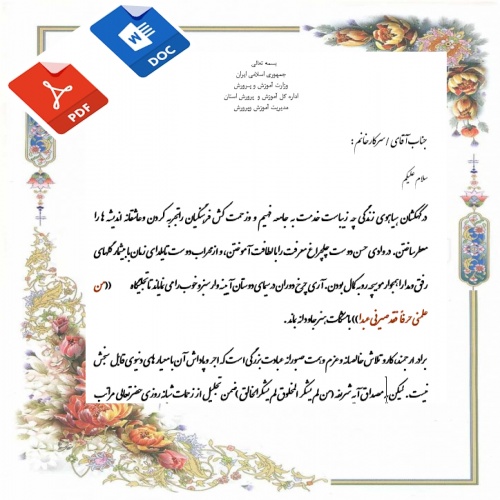 PDF
W
DOC
بسمه تعالی
جمهوری اسلامی ایران
وزارت آموزش و پرورش
اداره کل آموزش و پرورش استان
مدیریت آموزش وپرورش
جناب آقای / سرکارخانم :
سلام علیکم
در کهکشان بیاهوی زندگی چه زیباست خدمت به جامعه فهیم و زحمت کش فرهنگیان را تجربه کردن و عاشقانه اندیشه ها را
معطر ساختن. در وادی حسن دوست چلچراغ معرفت را با لطافت آموختن، و از محراب دوست تا یلدای زمان با
رفق و مدارا هموار مسیر چه رو به کمال بودن. آری چرخ دوران در سیمای دوستان آینه دار سبز و خوب را می نمایاند تا تجلیگاه ((من
علمنی حرفاً فقد صیرنی عبدا)) با مشکات هنر جاودانه بماند.
برادر ارجمند، کار و تلاش خالصانه و عزم و همت صبورانه عبادت بزرگی است که اجر و پاداش آن با معیارهای دنیوی قابل سنجش
نیست. لیکن به مصداق آیه شریفه (من لم یشکر المخلوق لم یشکر الخالق) ضمن تجلیل از زحمات شبانه روزی حضرتعالی مراتب